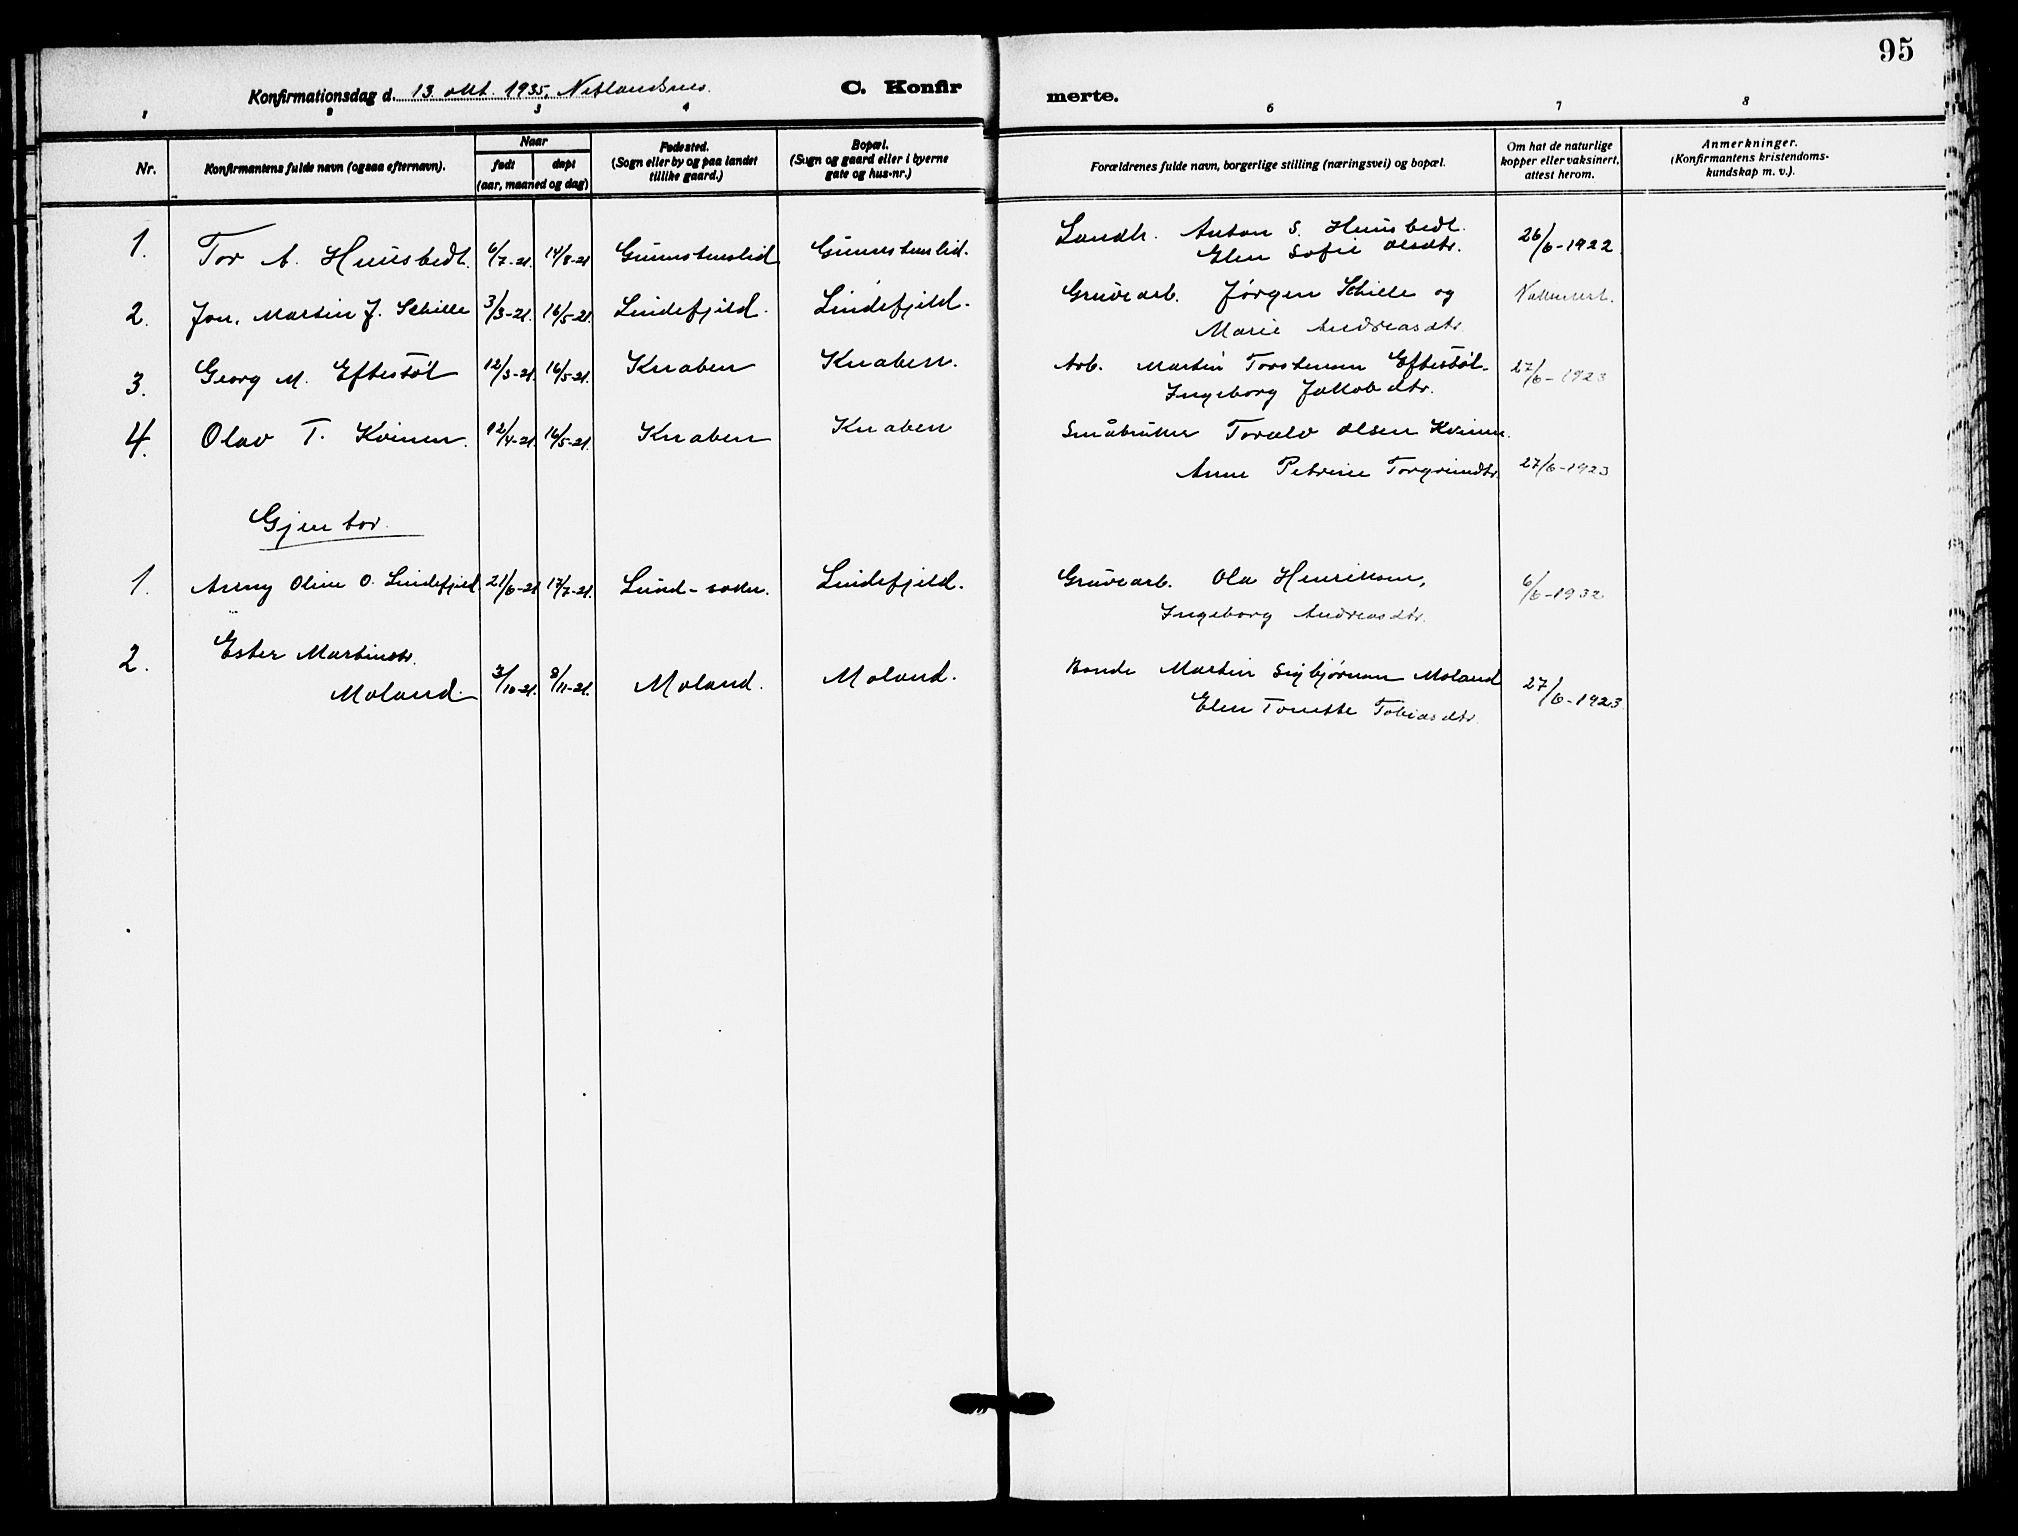 95
Konfirmationsdag d. 13. okt. 1935, Netlandsnes.
C. Konfirmerte.
1 2 3 4 6 7 8
Nr.
Konfirmantens fulde navn (ogsaa efternavn).
Naar
født
døpt
(aar, maaned og dag)
Fødested.
(Sogn eller by og paa landet
tillike gaard.)
Bopæl.
(Sogn og gaard eller i byerne
gate og hus-nr.)
Forældrenes fulde navn, borgerlige stilling (næringsvei) og bopæl.
Om hat de naturlige
kopper eller vaksinert,
attest herom.
Anmerkninger.
(Konfirmantens kristendoms-
kundskap m. v.).
1. Tor A. Huusbedt. 6/7-21. 14/8-21 Gunnstenslid Gunnstenslid. Landh. Anton S. Huusbedt. 26/6-1922
Elen Sofie Olsdtr.
2. Jon. Martin J. Schille 3/3-21. 16/5-21. Lindefjeld. Lindefjeld. Gruvearb. Jørgen Schille og
Marie Andreasdtr.
3. Georg M. Eftestøl 12/3-21. 16/5-21. Knaben Knaben. Arb. Martin Torstensen Eftestøl 27/6-1923
Ingeborg Jakobdtr.
4. Olav T. Kvinen. 12/4-21. 16/5-21. Knaben Knaben Småbruker Toralv Olsen Kvinen.
Anne Petrine Torgrimdtr. 27/6-1923
Gjentor.
1. Aseny Oline O. Lindefjeld. 21/6-21 17/7-21. Lund-sokn. Lindefjeld. Gruvearb. Ola Henriksen, 6/6-1932
Ingeborg Andreasdtr.
2. Ester Martinstr.
Moland. 3/10-21. 8/11-21. Moland. Moland. Bonde Martin Sigbjørnsen Moland 27/6-1923
Elen Tonette Tobiasdtr.